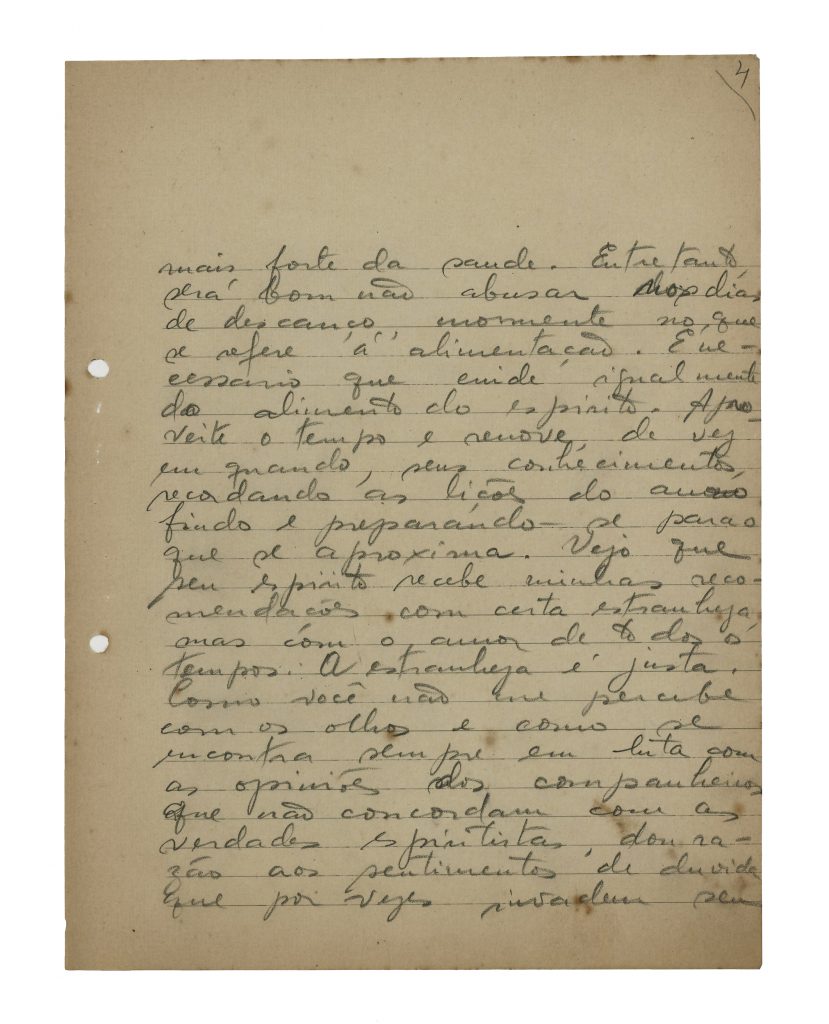 4
mais forte da saude. Entretanto,
será bom não abusar nos dias
de descanço, mormente no que
se refere á alimentação. É ne-
cessario que cuide igualmente
do alimento do espirito. Apro-
veite o tempo e renove, de vez
em quando, seus conhécimentos,
recordando as lições do anno
findo e preparando-se para o
que se aproxima. Vejo que
seu espirito recebe minhas reco-
mendações com certa estranheza,
mas com o amor de todos os
tempos. A estranheza é justa.
Como você não me percebe
com os olhos e como se
encontra sempre em luta com
as opiniões dos companheiros
que não concordam com as
verdades espiritistas, dou ra-
zão aos sentimentos de duvida
que por vezes invadem seu